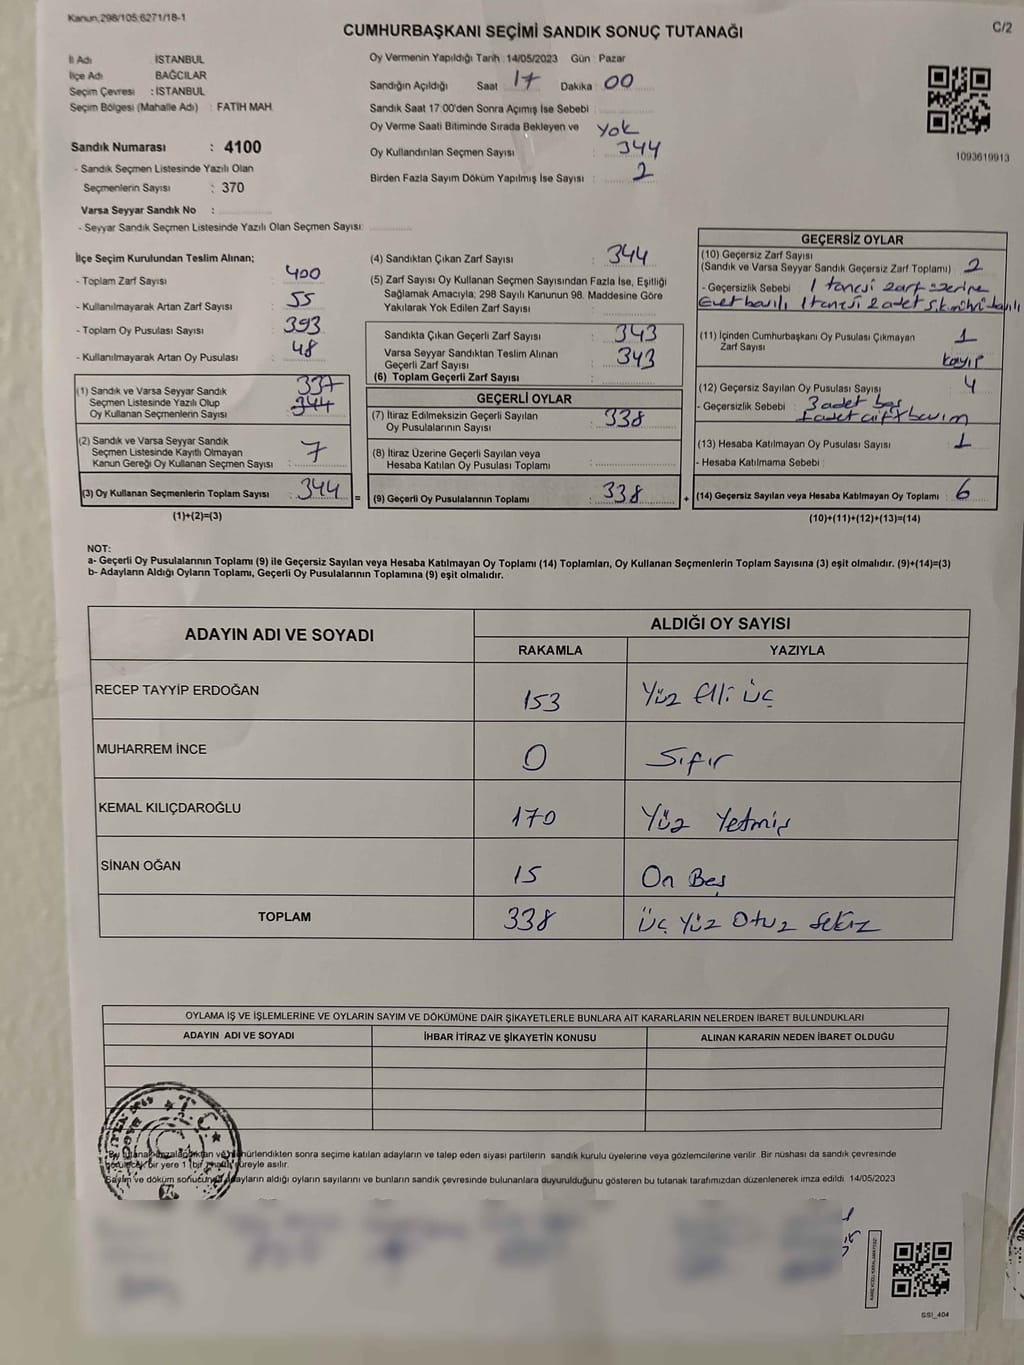 Kanun;298/105;6271/18-1
CUMHURBAŞKANI SEÇİMİ SANDIK SONUÇ TUTANAĞI
C/2
İl Adı İSTANBUL
İlçe Adı BAĞCILAR
Seçim Çevresi : İSTANBUL
Seçim Bölgesi (Mahalle Adı) : FATİH MAH.
Oy Vermenin Yapıldığı Tarih :14/05/2023 Gün : Pazar
Sandığın Açıldığı Saat 17 Dakika 00
Sandık Saat 17:00'den Sonra Açımış İse Sebebi :
Oy Verme Saati Bitiminde Sırada Bekleyen ve Yok
Oy Kullandırılan Seçmen Sayısı : 344
Birden Fazla Sayım Döküm Yapılmış İse Sayısı : 2
1093619913
Sandık Numarası : 4100
- Sandık Seçmen Listesinde Yazılı Olan
Seçmenlerin Sayısı : 370
Varsa Seyyar Sandık No :
- Seyyar Sandık Seçmen Listesinde Yazılı Olan Seçmen Sayısı:
İlçe Seçim Kurulundan Teslim Alınan;
- Toplam Zarf Sayısı : 400
- Kullanılmayarak Artan Zarf Sayısı : 55
- Toplam Oy Pusulası Sayısı : 393
- Kullanılmayarak Artan Oy Pusulası : 48
(1) Sandık ve Varsa Seyyar Sandık 337
Seçmen Listesinde Yazılı Olup 344
Oy Kullanan Seçmenlerin Sayısı
(2) Sandık ve Varsa Seyyar Sandık
Seçmen Listesinde Kayıtlı Olmayan 7
Kanun Gereği Oy Kullanan Seçmen Sayısı :
(3) Oy Kullanan Seçmenlerin Toplam Sayısı : 344
(1)+(2)=(3)
(4) Sandıktan Çıkan Zarf Sayısı : 344
(5) Zarf Sayısı Oy Kullanan Seçmen Sayısından Fazla İse, Eşitliği
Sağlamak Amacıyla; 298 Sayılı Kanunun 98. Maddesine Göre
Yakılarak Yok Edilen Zarf Sayısı :
Sandıkta Çıkan Geçerli Zarf Sayısı : 343
Varsa Seyyar Sandıktan Teslim Alınan 343
Geçerli Zarf Sayısı :
(6) Toplam Geçerli Zarf Sayısı :
GEÇERLİ OYLAR
(7) İtiraz Edilmeksizin Geçerli Sayılan
Oy Pusulalarının Sayısı : 338
(8) İtiraz Üzerine Geçerli Sayılan veya
Hesaba Katılan Oy Pusulası Toplamı :
= (9) Geçerli Oy Pusulalarının Toplamı : 338 +
GEÇERSİZ OYLAR
(10) Geçersiz Zarf Sayısı
(Sandık ve Varsa Seyyar Sandık Geçersiz Zarf Toplamı) : 2
- Geçersizlik Sebebi : 1 tanesi zarf üzerine
Evet basılı 1 tanesi 2 adet
(11) İçinden Cumhurbaşkanı Oy Pusulası Çıkmayan 1
Zarf Sayısı kayıp
(12) Geçersiz Sayılan Oy Pusulası Sayısı : 4
- Geçersizlik Sebebi : 3 adet boş
1 adet çift basım
(13) Hesaba Katılmayan Oy Pusulası Sayısı : 1
- Hesaba Katılmama Sebebi :
(14) Geçersiz Sayılan veya Hesaba Katılmayan Oy Toplamı : 6
(10)+(11)+(12)+(13)=(14)
NOT:
a- Geçerli Oy Pusulalarının Toplamı (9) ile Geçersiz Sayılan veya Hesaba Katılmayan Oy Toplamı (14) Toplamları, Oy Kullanan Seçmenlerin Toplam Sayısına (3) eşit olmalıdır. (9)+(14)=(3)
b- Adayların Aldığı Oyların Toplamı, Geçerli Oy Pusulalarının Toplamına (9) eşit olmalıdır.
ADAYIN ADI VE SOYADI
ALDIĞI OY SAYISI
RAKAMLA YAZIYLA
RECEP TAYYİP ERDOĞAN 153 Yüz Elli üç
MUHARREM İNCE 0 Sıfır
KEMAL KILIÇDAROĞLU 170 Yüz Yetmiş
SİNAN OĞAN 15 On Beş
TOPLAM 338 üç Yüz Otuz Sekiz
OYLAMA İŞ VE İŞLEMLERİNE VE OYLARIN SAYIM VE DÖKÜMÜNE DAİR ŞİKAYETLERLE BUNLARA AİT KARARLARIN NELERDEN İBARET BULUNDUKLARI
ADAYIN ADI VE SOYADI İHBAR İTİRAZ VE ŞİKAYETİN KONUSU ALINAN KARARIN NEDEN İBARET OLDUĞU
T.C.
sonra seçime katılan adayların ve talep eden siyasi partilerin sandık kurulu üyelerine veya gözlemcilerine verilir. Bir nüshası da sandık çevresinde
bir yere 1 (bir) süreyle asılır.
Sayım ve döküm sonucunda adayların aldığı oyların sayılarını ve bunların sandık çevresinde bulunanlara duyurulduğunu gösteren bu tutanak tarafımızdan düzenlenerek imza edildi. 14/05/2023
SSI_404